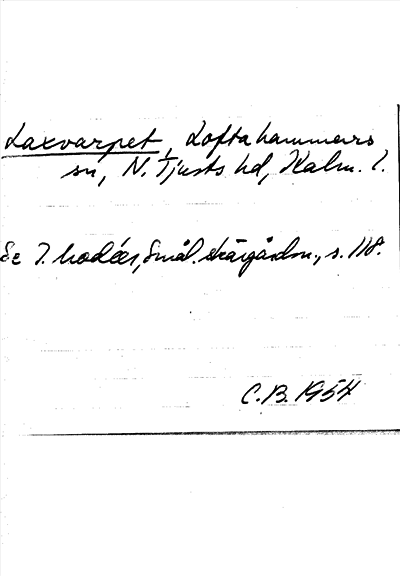 Laxvarpet, Loftahammars
sn, N. Tjusts hd, Kalm. l.
Se I. Modéer, Smål. skärgårdsn., s. 118.
C.B. 1954